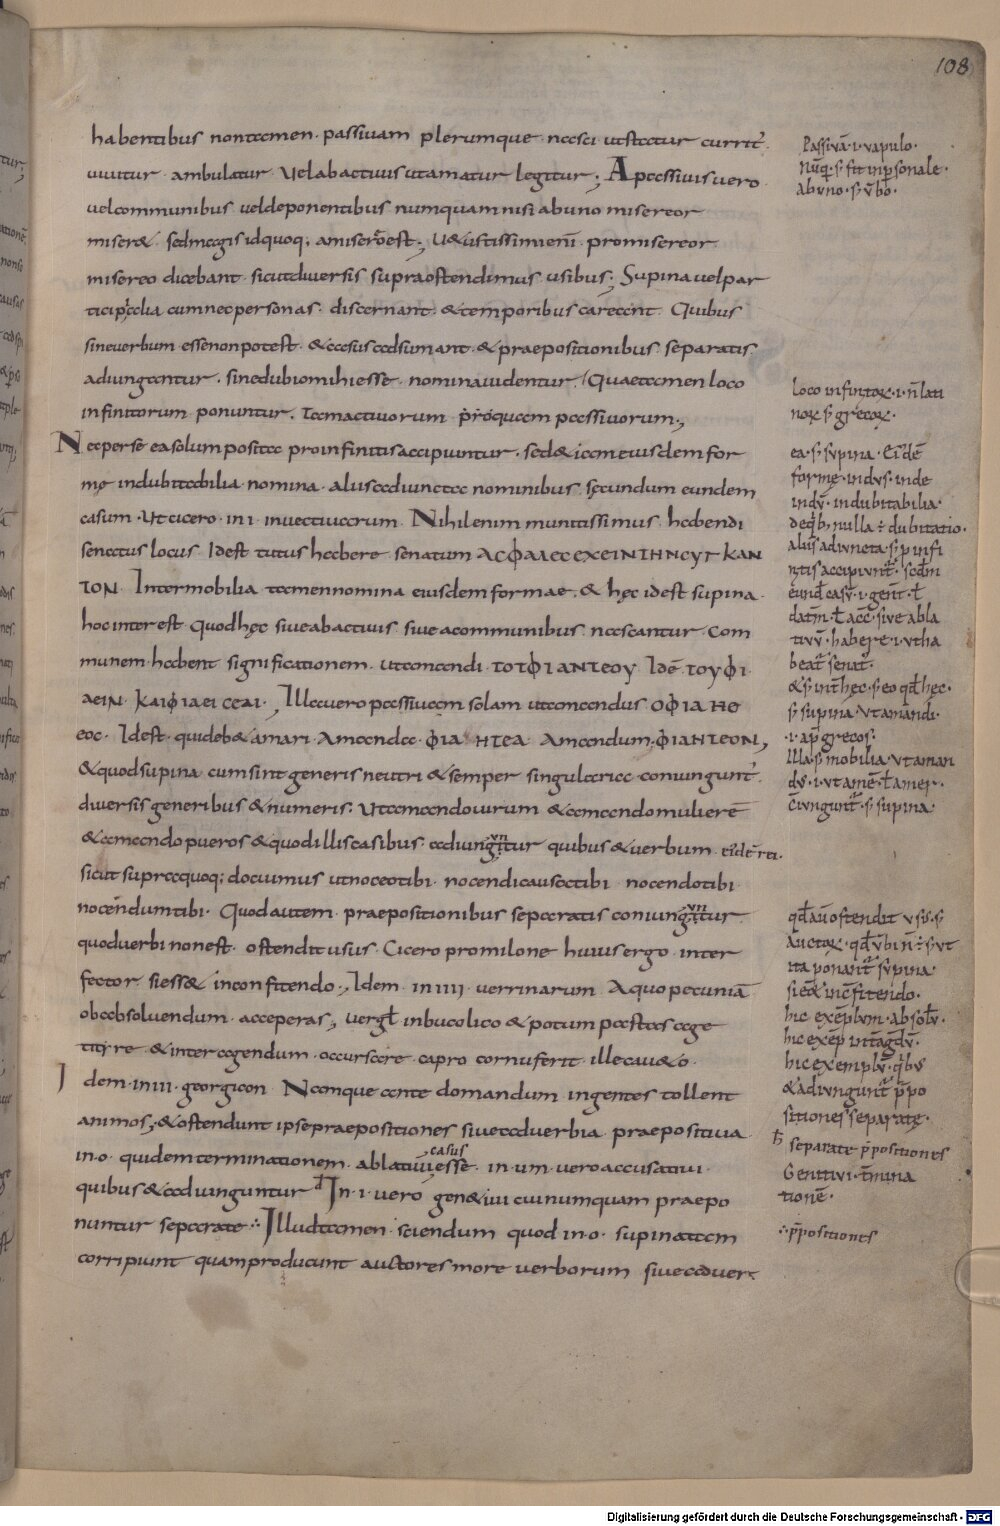 108
habentibus nontamen· passiuam plerumque· nasci uistatur curritˀ·
uiuitur· ambulatur· Uelabactiuis utamatur legitur; Apassiuis uero
uelcommunibus ueldeponentibus numquam nisi abuno misereor
miser& sedmagis idquoq; amiserest; U&ustissimieni promisereor
misereo dicebant· sicutdiuersis supraostendimus usibus; Supina uelpar
ticipialia cumnecpersonas· discernant· &temporibus careant· Quibus
sineuerbum· essenonpotest· &casus adsumant· &praepositionibus separatis
adiungantur· sinedubiomihiesse· nominauidentur· Quaetamen loco
infinitorum ponuntur· tamactiuorum quam passiuorum;
Necperse ea solum posita proinfinitis accipiuntur· sed& iam eiusdem for
mę indubitabilia nomina· aliis adiuncta nominibus secundum eundem
casum· Ut cicero· in·i· inuectiuarum· Nihilenim munitissimus habendi
senatus locus· Idest tutus habere senatum ΑϹΦΑΛΕϹ ΕΧΕΙΝ ΤΗΝ ϹΥΓΚΛΗ
ΤΟΝ· Intermobilia tamennomina eiusdem formae· & hęc idest supina·
hocinterest· Quodhęc siueabactiuis siue acommunibus nascantur· Com
munem·habent significationem· utamandi· ΤΟΤΦΙΑΝΤΕΟΥ· Idē· ΤΟΥΦΙ·
ΛΕΙΝ· ΚΑΙΦΙΛΕΙϹΘΑΙ·, Illa uero passiuam solam utamandus ΟΦΙΛΗΘ
ΕΟϹ· Idest· quideb& amari· Amanda· ΦΙΛΗΤΕΑ Amandum·ΦΙΛΗΤΕΟΝ,
&quodsupina cumsint generis neutri &semper singularia coniunguntˀ·
diuersis generibus &numeris· Utamandouirum &amandomulierē
&amandopueros &quodilliscasibus adiungitur quibus &uerbum· eide rei·
sicut supraquoq; docuimus utnoceotibi· nocendicausatibi· nocendotibi·
nocendumtibi· Quod autem praepositionibus separatis coniungitur
quoduerbi nonest· ostenditusus· Cicero promilone huius ergo inter
fector siess& inconfitendo·, Idem· in iiii· uerrinarum· A quo pecuniā
obabsoluendum· acceperas; uergł inbucolico &potum pastas age
tityre &inter agendum· occursare capro cornuferit ille cau&o·
Idem·iniii·georgicon Namque ante domandum ingentes tollent
animos;·&ostendunt ipsepraepositiones siueaduerbia praepositiua·
in·o· quidemterminationem· ablatiui casus esse· in·um·uero accusatiui·
quibus &adiunguntur In·i·uero gen&iui cuinumquam praepo
nuntur separate·:· Illudtamen sciendum quod in·o· supinatam
corripiunt quamproducunt auctores more uerborum siueaduer·
Passiuā·i·uapulo·
Nūq· s· fit inpsonale·
ab uno· s· ubo·
loco infinitoꝝ·i·n̄ lati
noꝝ s· grecoꝝ·
ea· s· supina· Eidē
formę·indus·inde
indū·indubitabilia·
deqb; nulla ÷ dubitatio·
aliis adiuncta· s· p infi
nitis accipiunt̄· scdm
eund casū·i·genit· t
datm· t acc· siue abla
tiuū· habere·i·utha
beat senat·
& s· int hęc· s· eo qd hęc·
s· supina· Utamandi·
·i· ap grecos·
Illa· s· mobilia· utaman
dus·i·utamē· t amer·
Ciungunt· s· supina
qd aū ostendit usus· s·
auctoꝝ·qd ubi n̄ ÷ s· ut
ita ponant supina·
sie& inconfitendo·
hic exēplum·absolū·
hic exēp intagdū·
hic exemplū· qbus
&adiungunt ppo
sitiones separatę·
separate ppositiones
Genitiui·tmina
tionē·
·:·ppositiones
Digitalisierung gefördert durch die Deutsche Forschungsgemeinschaft - DFG